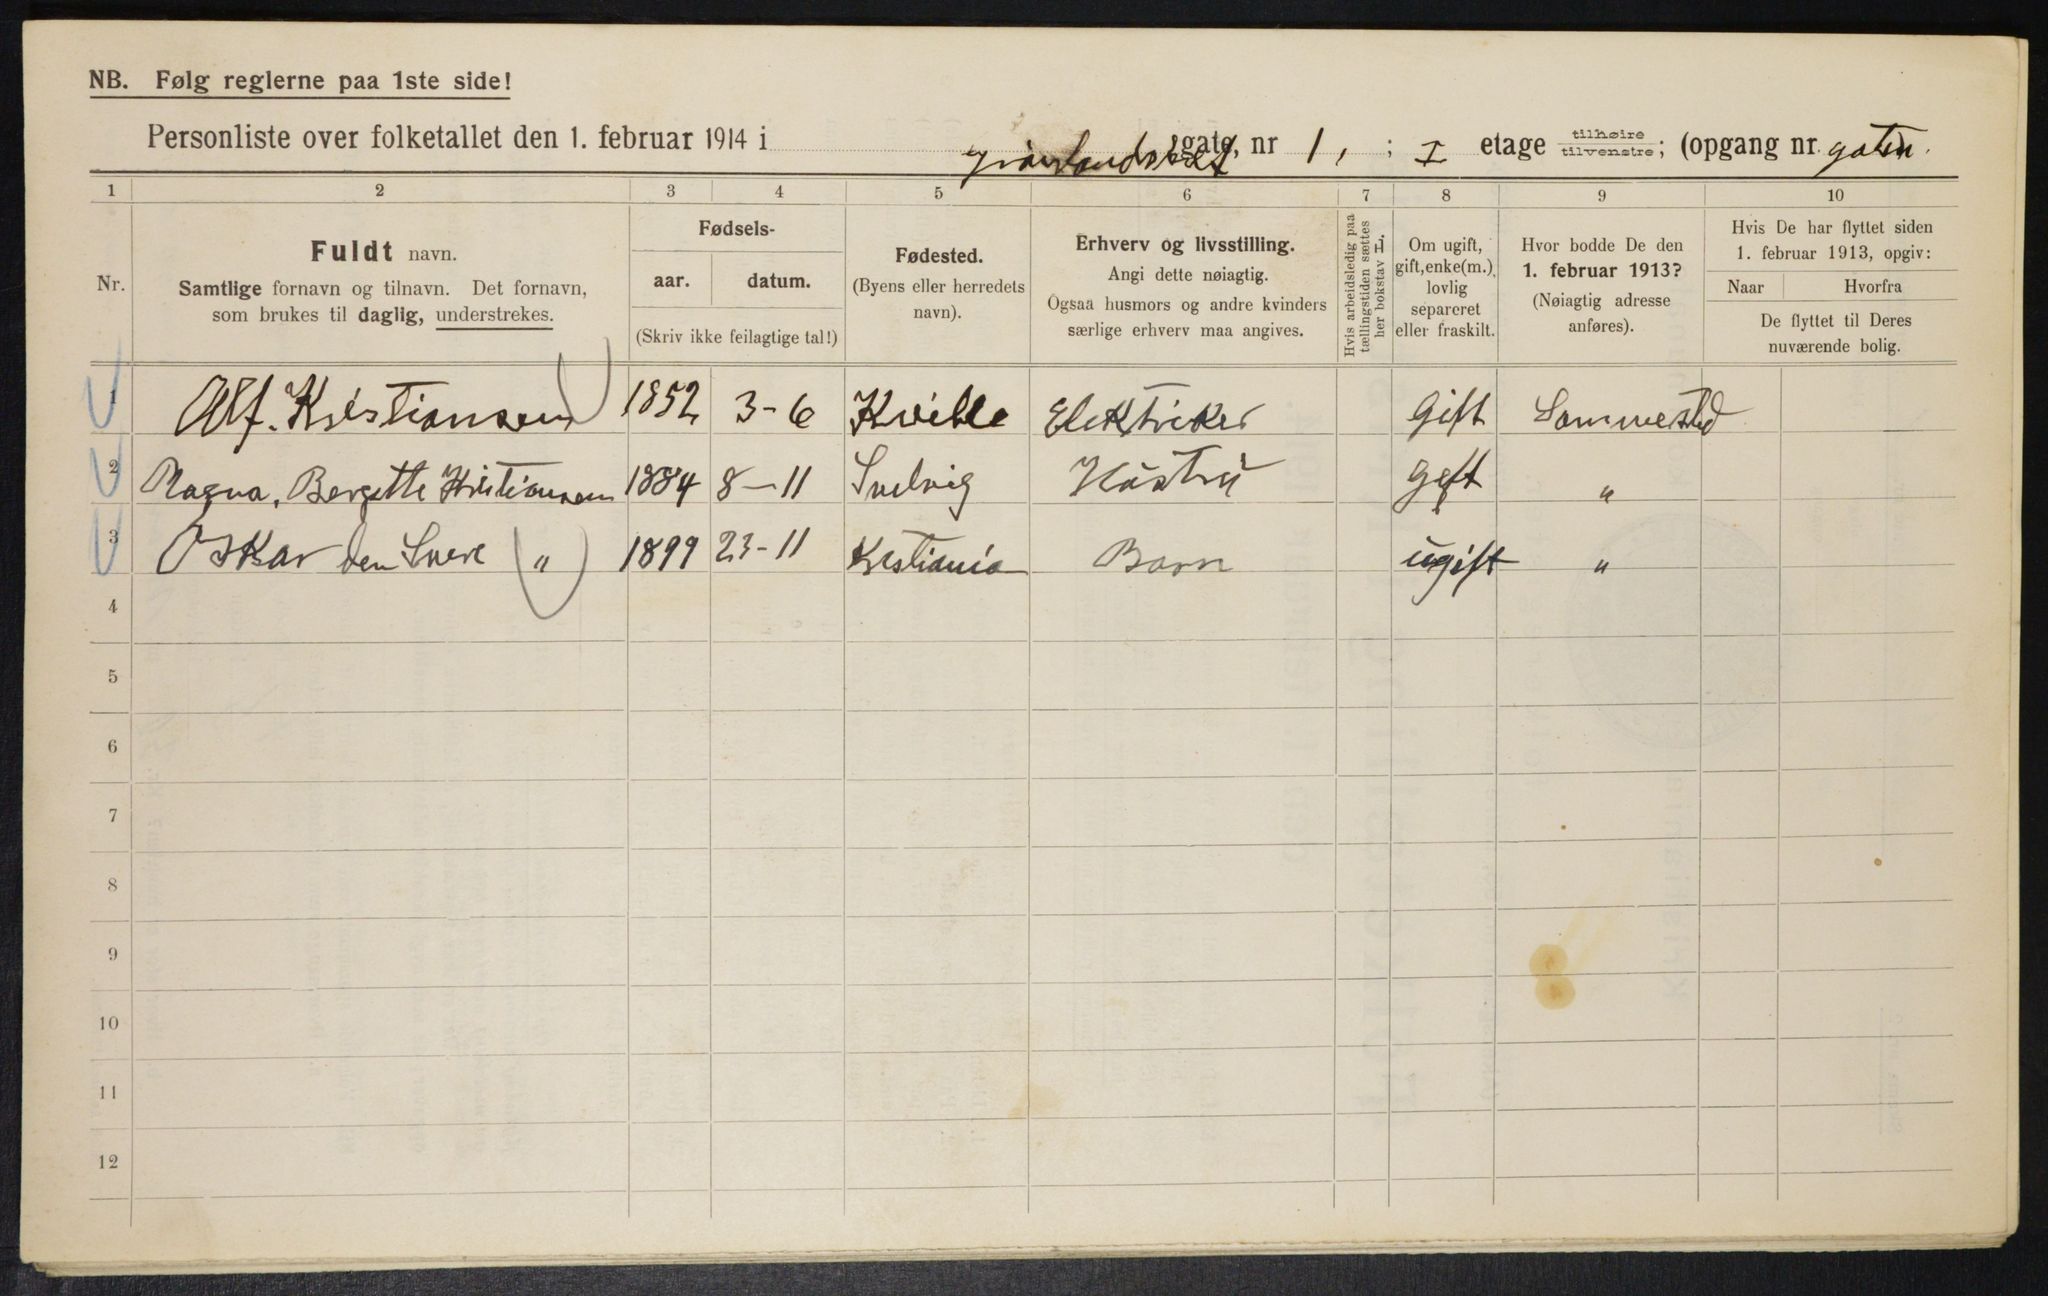 NB. Følg reglerne paa 1ste side!
Personliste over folketallet den 1. februar 1914 i Grønlandsleret sgate, nr 1, ; I etage tilhøire tilvenstre; (opgang nr. gaten.
1 2 3 4 5 6 7 8 9 10
Nr.
Fuldt navn.
Samtlige fornavn og tilnavn. Det fornavn,
som brukes til daglig, understrekes.
Fødsels-
aar. datum.
(Skriv ikke feilagtige tal!)
Fødested.
(Byens eller herredets
navn).
Erhverv og livsstilling.
Angi dette nøiagtig.
Ogsaa husmors og andre kvinders
særlige erhverv maa angives.
Hvis arbeidsledig paa
tællingstiden sættes
her bokstav L.
Om ugift,
gift, enke(m.),
lovlig
separeret
eller fraskilt.
Hvor bodde De den
1. februar 1913?
(Nøiagtig adresse
anføres).
Hvis De har flyttet siden
1. februar 1913, opgiv:
Naar Hvorfra
De flyttet til Deres
nuværende bolig.
1 Alf. Kristiansen 1852 3-6 Kville Elektriker Gift Sammested
2 Ragna, Bergitte Kristiansen 1884 8-11 Svelvig Hustru Gift "
3 Oskar " 1899 23-11 Kristiania Barn ugift "
4
5
6
7
8
9
10
11
12